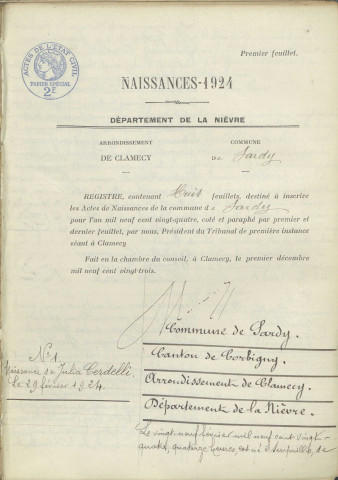 Premier feuillet.
ACTES DE L'ETAT CIVIL
PAPIER SPÉCIAL
2F
NAISSANCES-1924
DÉPARTEMENT DE LA NIÈVRE
ARRONDISSEMENT
DE CLAMECY
COMMUNE
De Sardy
REGISTRE, contenant Huit feuillets, destiné à inscrire
les Actes de Naissances de la commune de Sardy
pour l'an mil neuf cent vingt-quatre, coté et paraphé par premier et
dernier feuillet, par nous, Président du Tribunal de première instance
séant à Clamecy
Fait en la chambre du conseil, à Clamecy, le premier décembre
mil neuf cent vingt-trois.
Commune de Sardy.
Canton de Corbigny.
Arrondissement de Clamecy.
Département de la Nièvre.
No 1
Naissance de Julia Cerdelli.
Le 29 février 1924.
Le vingt-neuf février mil neuf cent vingt-
quatre, quatorze heures, est né à